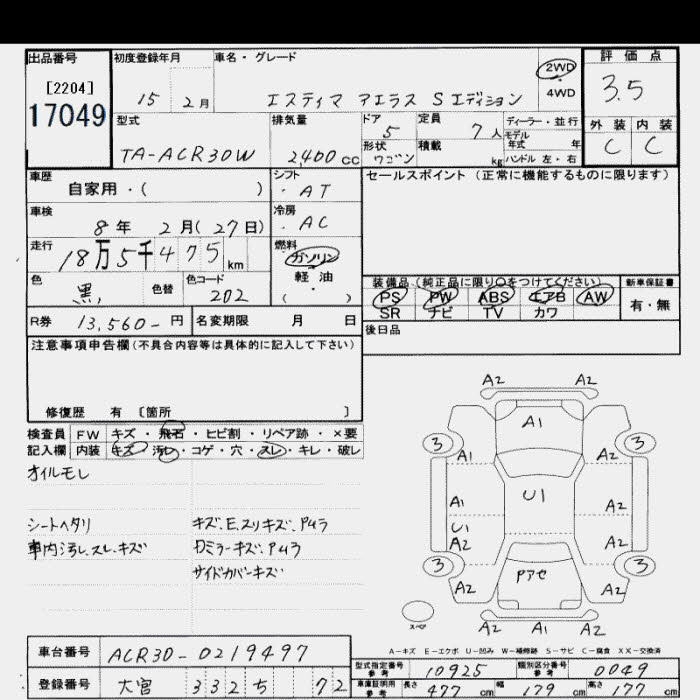 出品番号 初度登録年月 車名・グレード 評価点
[2204] 17049
15 2月 エスティマ アエラス Sエディション 2WD 4WD 3.5
型式 排気量 ドア 定員 ディーラー・並行 外装 内装
TA-ACR30W 2,400cc 5 7人 モデル年式 年 C C
形状 ワゴン 積載 kg ハンドル 左・右
車歴 シフト セールスポイント (正常に機能するものに限ります)
自家用・( ) ・AT
車検 冷房
8年 2月(27日) ・AC
走行 燃料
18万5千475km ガソリン
色 色替 色コード 軽油
黒 202 ( )
装備品(純正品に限り○をつけてください) 新車保証書
PS PW ABS エアB AW 有・無
SR ナビ TV カワ
R券 13,560-円 名変期限 月 日
後日品
注意事項申告欄(不具合内容等は具体的に記入して下さい)
修復歴 有 [箇所 ]
検査員 FW キズ・飛石・ヒビ割・リペア跡・×要
記入欄 内装 キズ・汚レ・コゲ・穴・スレ・キレ・破レ
オイルモレ
シートヘタリ キズ、E、スリキズ、Pムラ
車内汚レ、スレ、キズ Dミラーキズ、Pムラ
サイドカバーキズ
A2 A2
A1
3 3
A1 A2
A1 U1 A2
U1
A2 A2
3 3
A2 Pアセ A2
スペア
A2 U1 A2
A-キズ E-エクボ U-凹み W-補修跡 S-サビ C-腐食 XX-交換済
車台番号 ACR30-0219497
型式指定番号 参考 10925 類別区分番号 参考 0049
登録番号 大宮 332 ち 72
車庫証明用 参考 長さ 477cm 幅 179cm 高さ 77cm